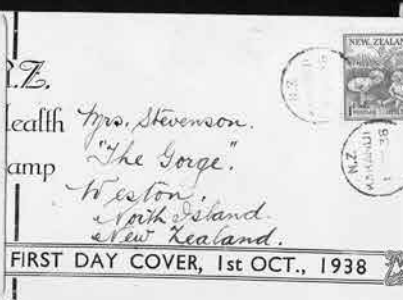 NEW ZEALAN
.Z.
ealth
amp
Mrs. Stevenson.
"The Gorge".
Weston.
North Island.
New Zealand.
N.Z.
N.Z.
KAKANUI
1 38
FIRST DAY COVER, 1st OCT., 1938